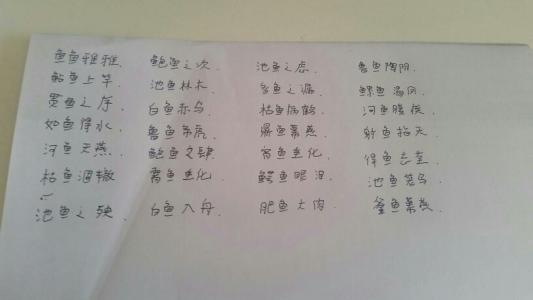 鱼鱼雅雅. 鲍鱼之次. 池鱼之虑. 鲁鱼陶阴.
鲇鱼上竿. 池鱼林木. 鱼之漏. 鳏鱼渴凤.
贯鱼之序. 白鱼赤乌. 枯鱼病鹤. 河鱼腹疾.
如鱼得水. 鲁鱼帝虎. 鱼幕燕. 射鱼指天
河鱼天燕. 鲍鱼之肆. 宵鱼垂化. 得鱼忘荃.
枯鱼涸辙 霄鱼垂化. 鳄鱼眼泪. 池鱼笼鸟
池鱼之殃. 白鱼入舟. 肥鱼大肉. 釜鱼幕燕.